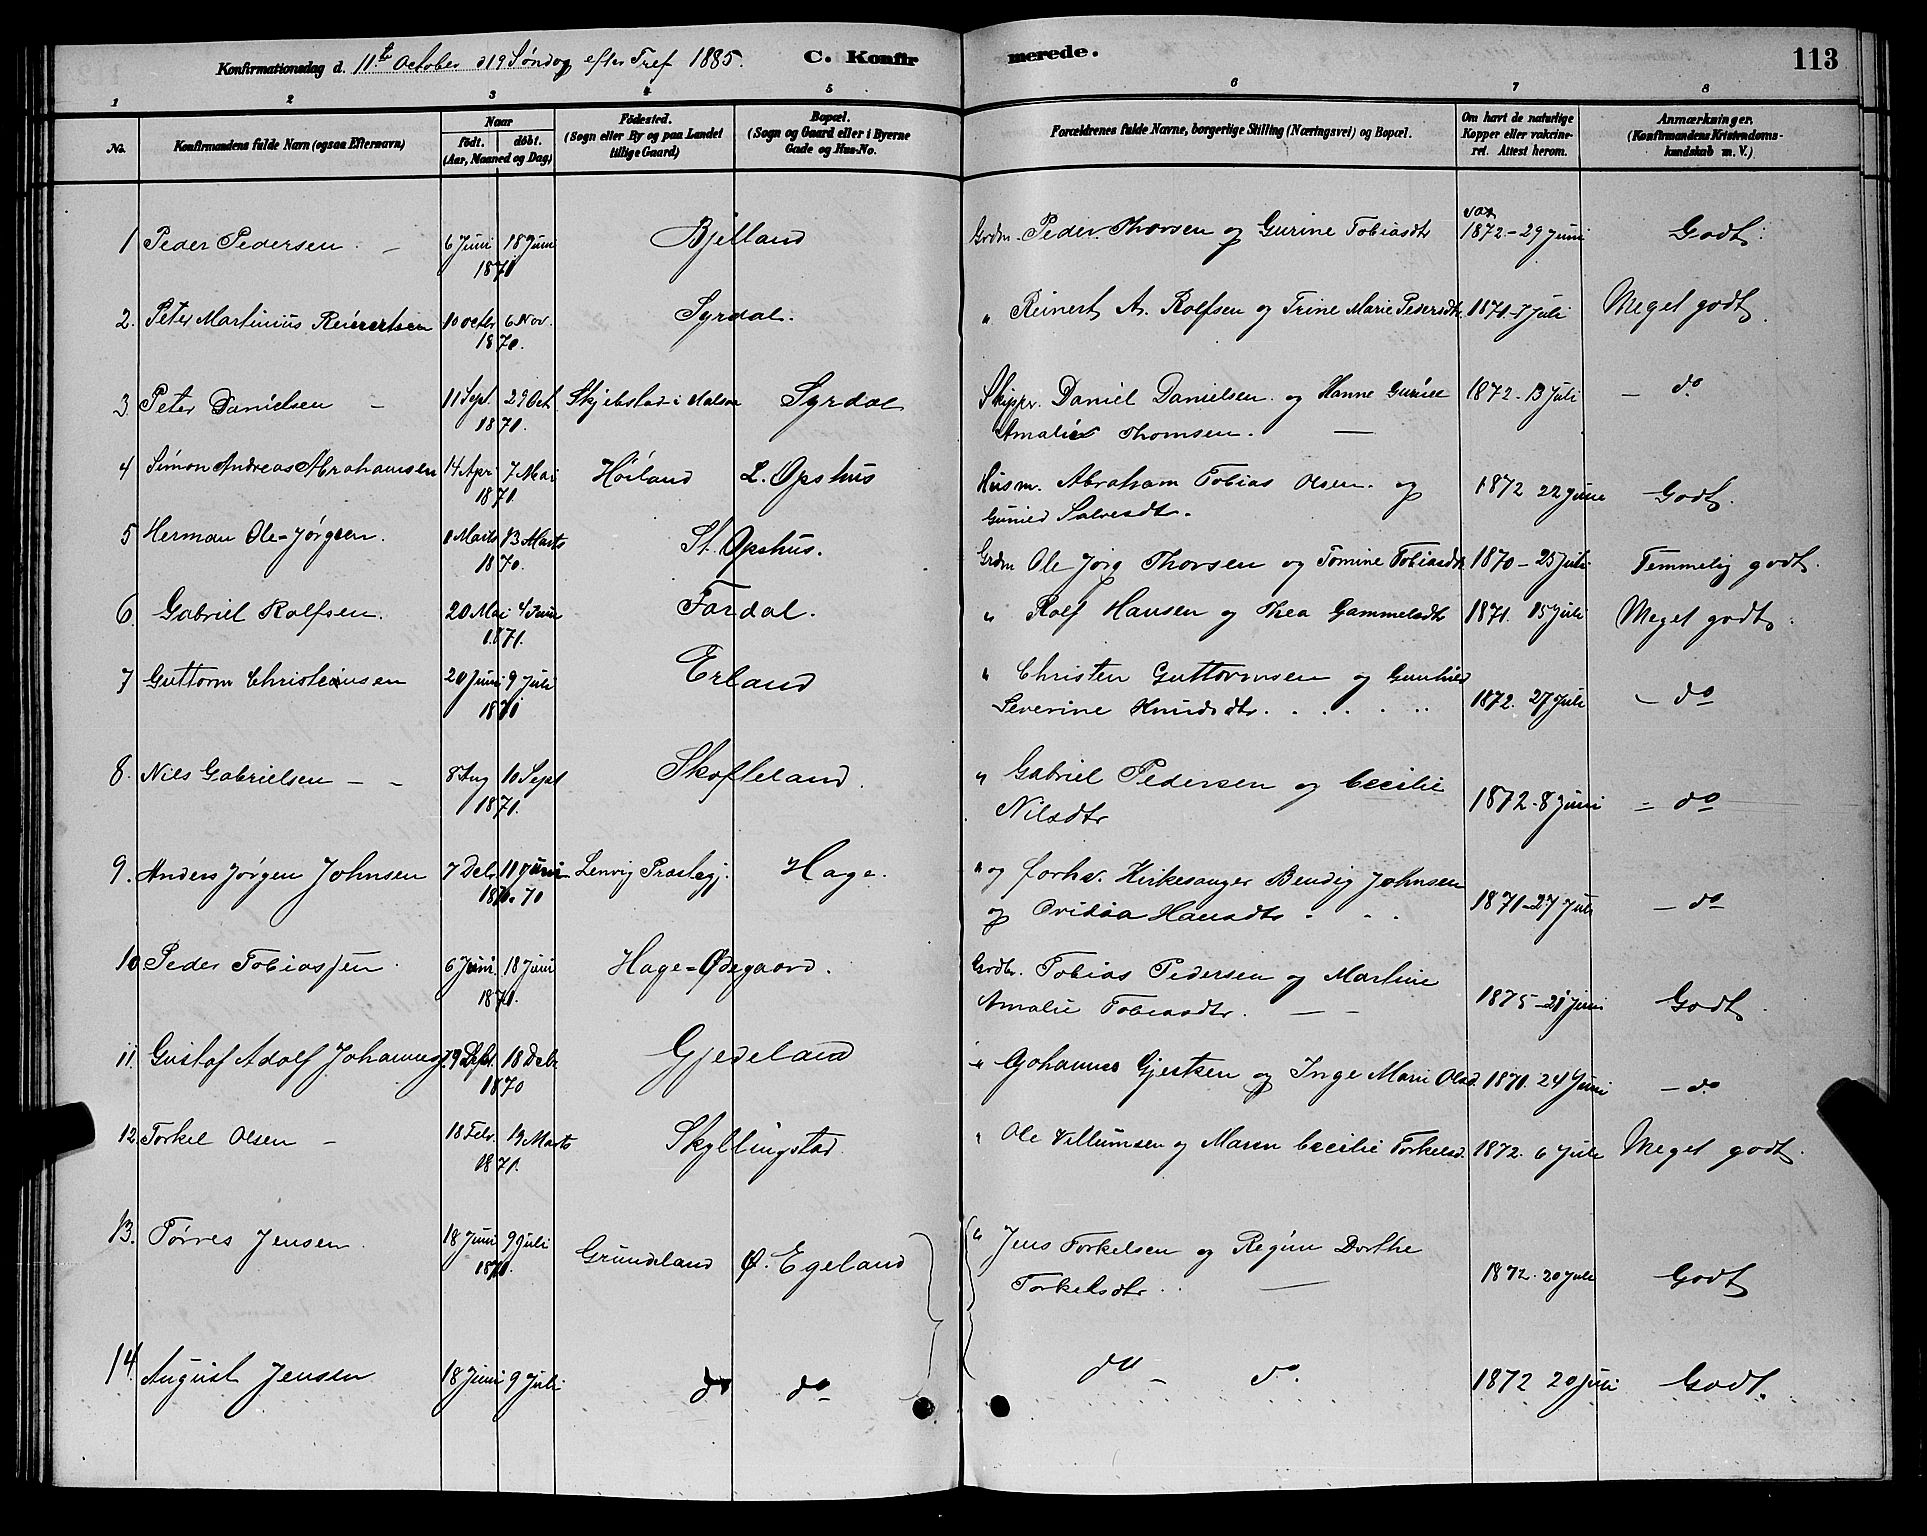 Konfirmationsdag d. 11te October 19 Søndag efter Tref 1885. C. Konfirmerede. 113
1 2 3 4 5 6 7 8
No. Konfirmandens fulde Navn (ogsaa Efternavn) Naar født. døbt. (Aar, Maaned og Dag) Fødested. (Sogn eller By og paa Landet tillige Gaard) Bopæl. (Sogn og Gaard eller i Byerne Gade og Hus-No. Forældrenes fulde Navne, borgerlige Stilling (Næringsvei) og Bopæl. Om havt de naturlige Kopper eller vakcineret. Attest herom. Anmærkninger. (Konfirmandens Kristendomskundskab m. V.)
1 Peder Pedersen - 6 Juni 18 Juni 1871 Bjelland Grdm. Peder Thorsen og Gurine Tobiasdtr vax 1872 - 29 Juni Godt
2. Peter Martinius Reinertsen 10 octbr 6 Nov. 1870. Syrdal. " Reinert A. Rolfsen og Trine Marie Pedersdtr 1871 - 7 Juli Meget godt
3 Peter Danielsen - 11 Sept. 29 Oct. 1871. Skjebstad i Halsaa Syrdal Skippr. Daniel Danielsen og Hanne Gurine 1872 - 13 Juli - do
Amalie Thomsen. -
4 Simon Andreas Abrahamsen 14 Apr 7 Mai 1871. Høiland L. Opshus Husm. Abraham Tobias Olsen og 1872 22 Juni Godt.
Gunild Salvesdtr.
5 Herman Ole-Jørgsen. Marts 13 Marts 1870. St. Opshus. Grdm Ole Jørg Thorsen og Tomine Tobiasdtr. 1870 - 25 Juli Temmelig godt.
6. Gabriel Rolfsen. 20 Mai 4 Juni 1871. Fardal. " Rolf Hansen og Thea Gammelsdtr 1871. 15 Juli Meget godt.
7 Guttorm Christensen 20 Juni 9 Juli 1871 Erland " Christen Guttormsen og Gunhild
Severine Knudsdtr. 1872. 27 Juli - do
8. Nils Gabrielsen - - 8 Aug 10 Sept 1871. Skofteland. " Gabriel Pedersen og Cecilie
Nilsdtr 1872 - 8 Juni - do
9. Anders Jørgen Johnsen 7 Debr 11 Juni Lenvig Præstegj. Hage. " og forhv. Kirkesanger Bendig Johnsen
og Ovidia Hansdtr - - 1871 - 27 Juli - do
10 Peder Tobiassen. 6 Juni. 18 Juni 1871. Hage-Ødegaard. Grdbr. Tobias Pedersen og Martine
Amalie Tobiasdtr. - - 1875 - 21 Juni Godt.
11. Gustaf Adolf Johannes. 19 Sept. 18 Debr 1870 Gjedeland " Johannes Gjertsen og Inge Marie Olsd. 1871. 24 Juni - do
12. Torkel Olsen - 18 Febr. 19 Marts 1871. Skyllingstad. " Ole Villumsen og Maren Cecilie Torkelsd. 1872. 6 Juli Meget godt.
13. Tørres Jensen 18 Juni 9 Juli 1871. Grundeland Ø. Egeland " Jens Torkelsen og Regine Dorthe
Torkelsdtr. - 1872. 20 Juli Godt
14 August Jensen 18 Juni 9 Juli do do do - do. 1872 20 Juli Godt.